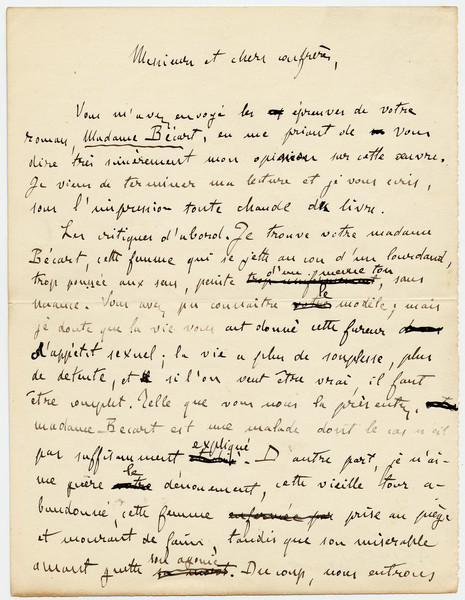 Messieurs et chers confrères,
Vous m'avez envoyé les épreuves de votre
roman, Madame Bécart, en me priant de vous
dire très sincèrement mon opinion sur cette œuvre.
Je viens de terminer ma lecture et je vous écris,
sous l'impression toute chaude du livre.
Les critiques d'abord. Je trouve votre madame
Bécart, cette femme qui se jette au cou d'un lourdaud,
trop poussée aux sens, peinte d'un même ton, sans
nuance. Vous avez pu connaître le modèle; mais
je doute que la vie vous ait donné cette fureur
d'appétit sexuel; la vie a plus de souplesse, plus
de détente, et si l'on veut être vrai, il faut
être complet. Telle que vous nous la présentez,
madame Bécart est une malade dont le cas n'est
pas suffisamment expliqué. D'autre part, je n'ai-
me guère le dénouement, cette vieille tour a-
bandonnée, cette femme prise au piège
et mourant de faim tandis que son misérable
amant guette son agonie. Du coup, nous entrons